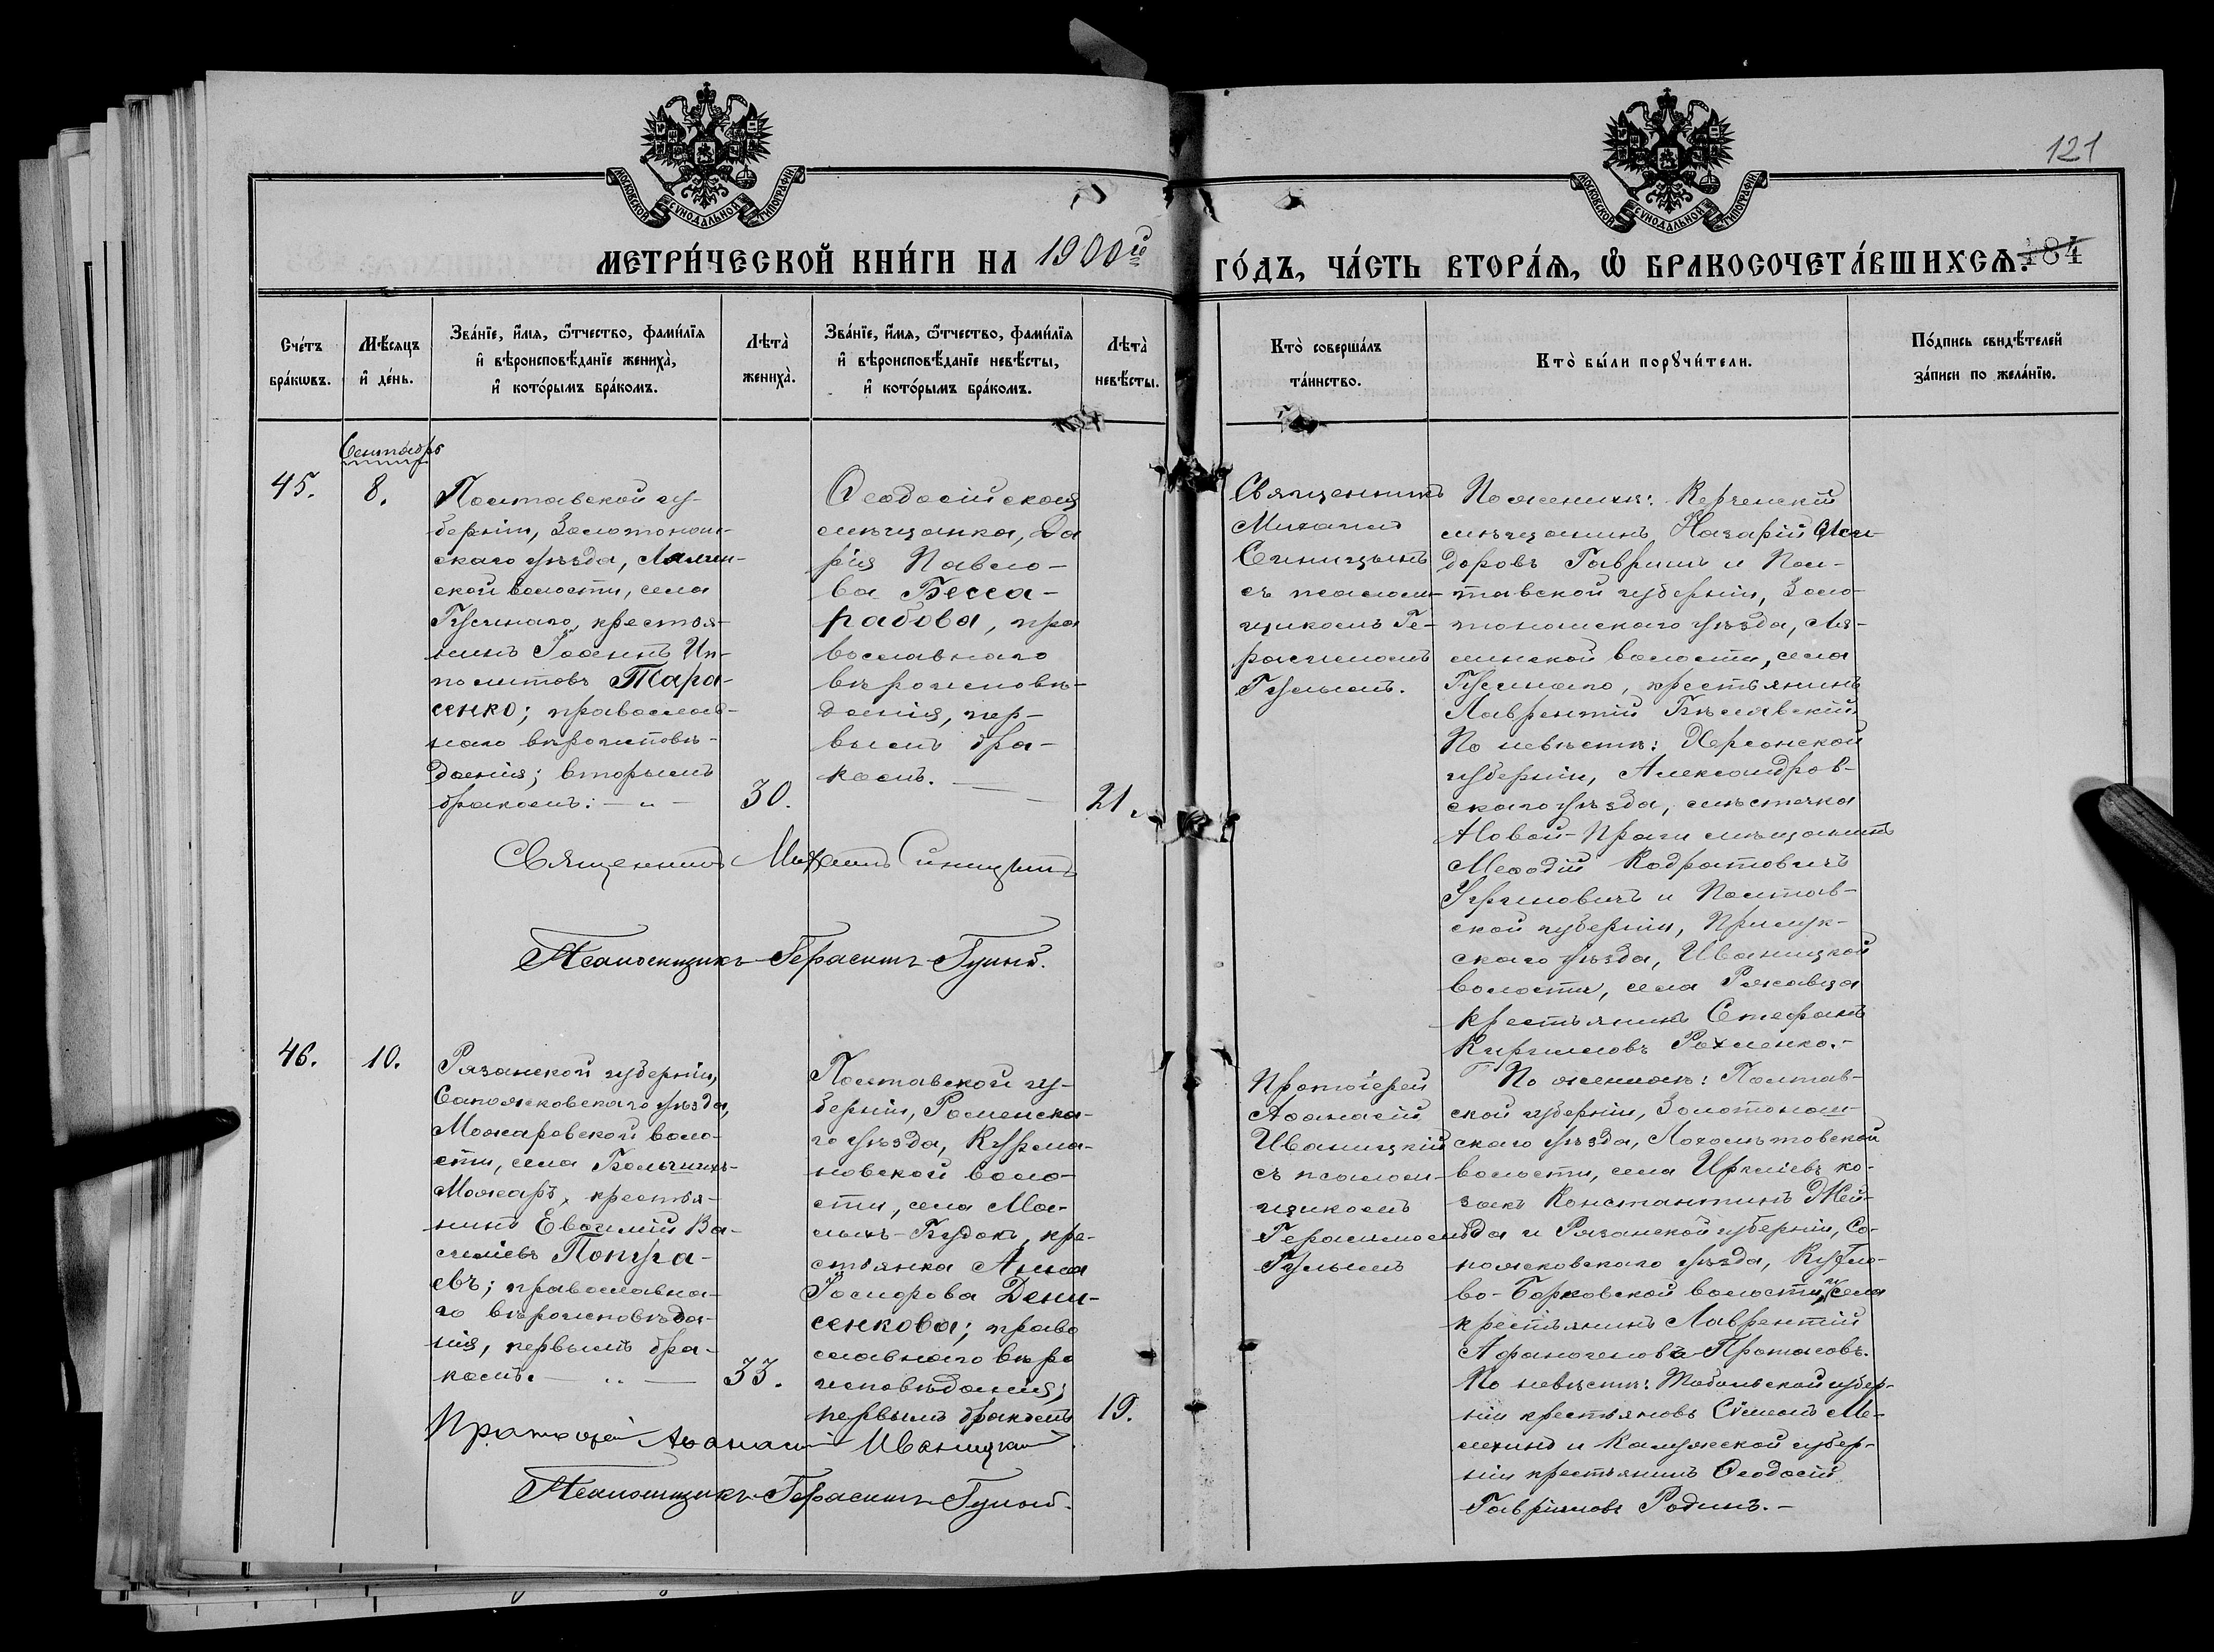 МОСКОВСКОЙ СѴНОДАЛЬНОЙ ТИПОГРАФІИ
МОСКОВСКОЙ СѴНОДАЛЬНОЙ ТИПОГРАФІИ
121
МЕТРИ́ЧЕСКОЙ КНИ́ГИ НА 1900й ГО́ДЪ, ЧА́СТЬ ВТОРА́Ѧ, Ѽ БРАКОСОЧЕТА́ВШИХСѦ. 184
Сче́тъ
бра́кѡвъ.
Мѣ́сяцъ
и҆ де́нь.
Зва́нїе, и҆́мя, ѻ҆́тчество, фами́лїя
и҆ вѣроисповѣ́данїе жениха̀,
и҆ кото́рымъ бра́комъ.
Лѣта̀
жениха̀.
Зва́нїе, и҆́мя, ѻ҆́тчество, фами́лїя
и҆ вѣроисповѣ́данїе невѣ́сты,
и҆ кото́рымъ бра́комъ.
Лѣта̀
невѣ́сты.
Кто̀ соверша́лъ
та́инство.
Кто̀ бы́ли порꙋчи́тели.
По́дпись свидѣ́телей
за́писи по жела́нїю.
Сентябрь
45.
8.
Полтавской гу-
берніи, Золотонош-
скаго уѣзда, Лялин-
ской волости, села
Гусинаго, крестья-
нинъ Іоаннъ Ип-
политовъ Тара-
сенко; православ-
наго вѣроисповѣ-
данія; вторымъ
бракомъ. — „ —
30.
Ѳеодосійская
мѣщанка, Да
рія Павло-
ва Бесса-
рабова, пра
вославнаго
вѣроисповѣ-
данія, пер-
вымъ бра-
комъ. —
21.
Священникъ
Михаилъ
Синицынъ
съ псалом-
щикомъ Ге-
расимомъ
Гулымъ.
По женихѣ: Керченскій
мѣщанинъ Назарій Иси-
доровъ Гавришъ и Пол-
тавской губерніи, Золо-
тоношскаго уѣзда, Ля-
линской волости, села
Гусинаго, крестьянинъ
Лаврентій Бѣлавскій.
По невѣстѣ: Херсонской
губерніи, Александров-
скаго уѣзда, мѣстечка
Новой-Праги мѣщанинъ
Меѳодій Кодратовичъ
и Полтав-
ской губерніи, Прилук-
скаго уѣзда, Иваницкой
волости, села Ржавца
крестьянинъ Стефанъ
Кирилловъ Рохленко.-
Священникъ Михаилъ Синицынъ
Псаломщикъ Герасимъ Гулый.
46.
10.
Рязанской губерніи,
Сапожковскаго уѣзда,
Можаровской воло-
сти, села Большихъ-
Можаръ, крестья-
нинъ Евѳимій Ва-
силіевъ Попуга-
евъ; православна-
го вѣроисповѣда-
нія, первымъ бра-
комъ. — „ —
33.
Полтавской гу-
берніи, Роменска-
го уѣзда,
новской воло-
сти, села Ма-
лыхъ-Будокъ, кре-
стьянка Анна
Іосифова Дени-
сенкова; право
славнаго вѣро
исповѣданія;
первымъ бракомъ
19.
Протоіерей
Аѳанасій
Иваницкій
съ псалом-
щикомъ
Герасимомъ
Гулымъ
По женихѣ: Полтав-
ской губерніи, Золотонош-
скаго уѣзда,
волости, села Ирклієвъ ко-
закъ Константинъ Жей-
да и Рязанской губерніи, Са-
пожковскаго уѣзда,
во-Борковской волости, села
крестьянинъ Лаврентій
Афаногеновъ Протасовъ.
По невѣстѣ: Тобольской губер-
ніи крестьяновъ Сѵмеонъ Ме-
лехинъ и Калужской губер-
ніи крестьянинъ Ѳеодосій
Гавріиловъ Родинъ.-
Протоіерей Аѳанасій Иваницкій
Псаломщикъ Герасимъ Гулый.